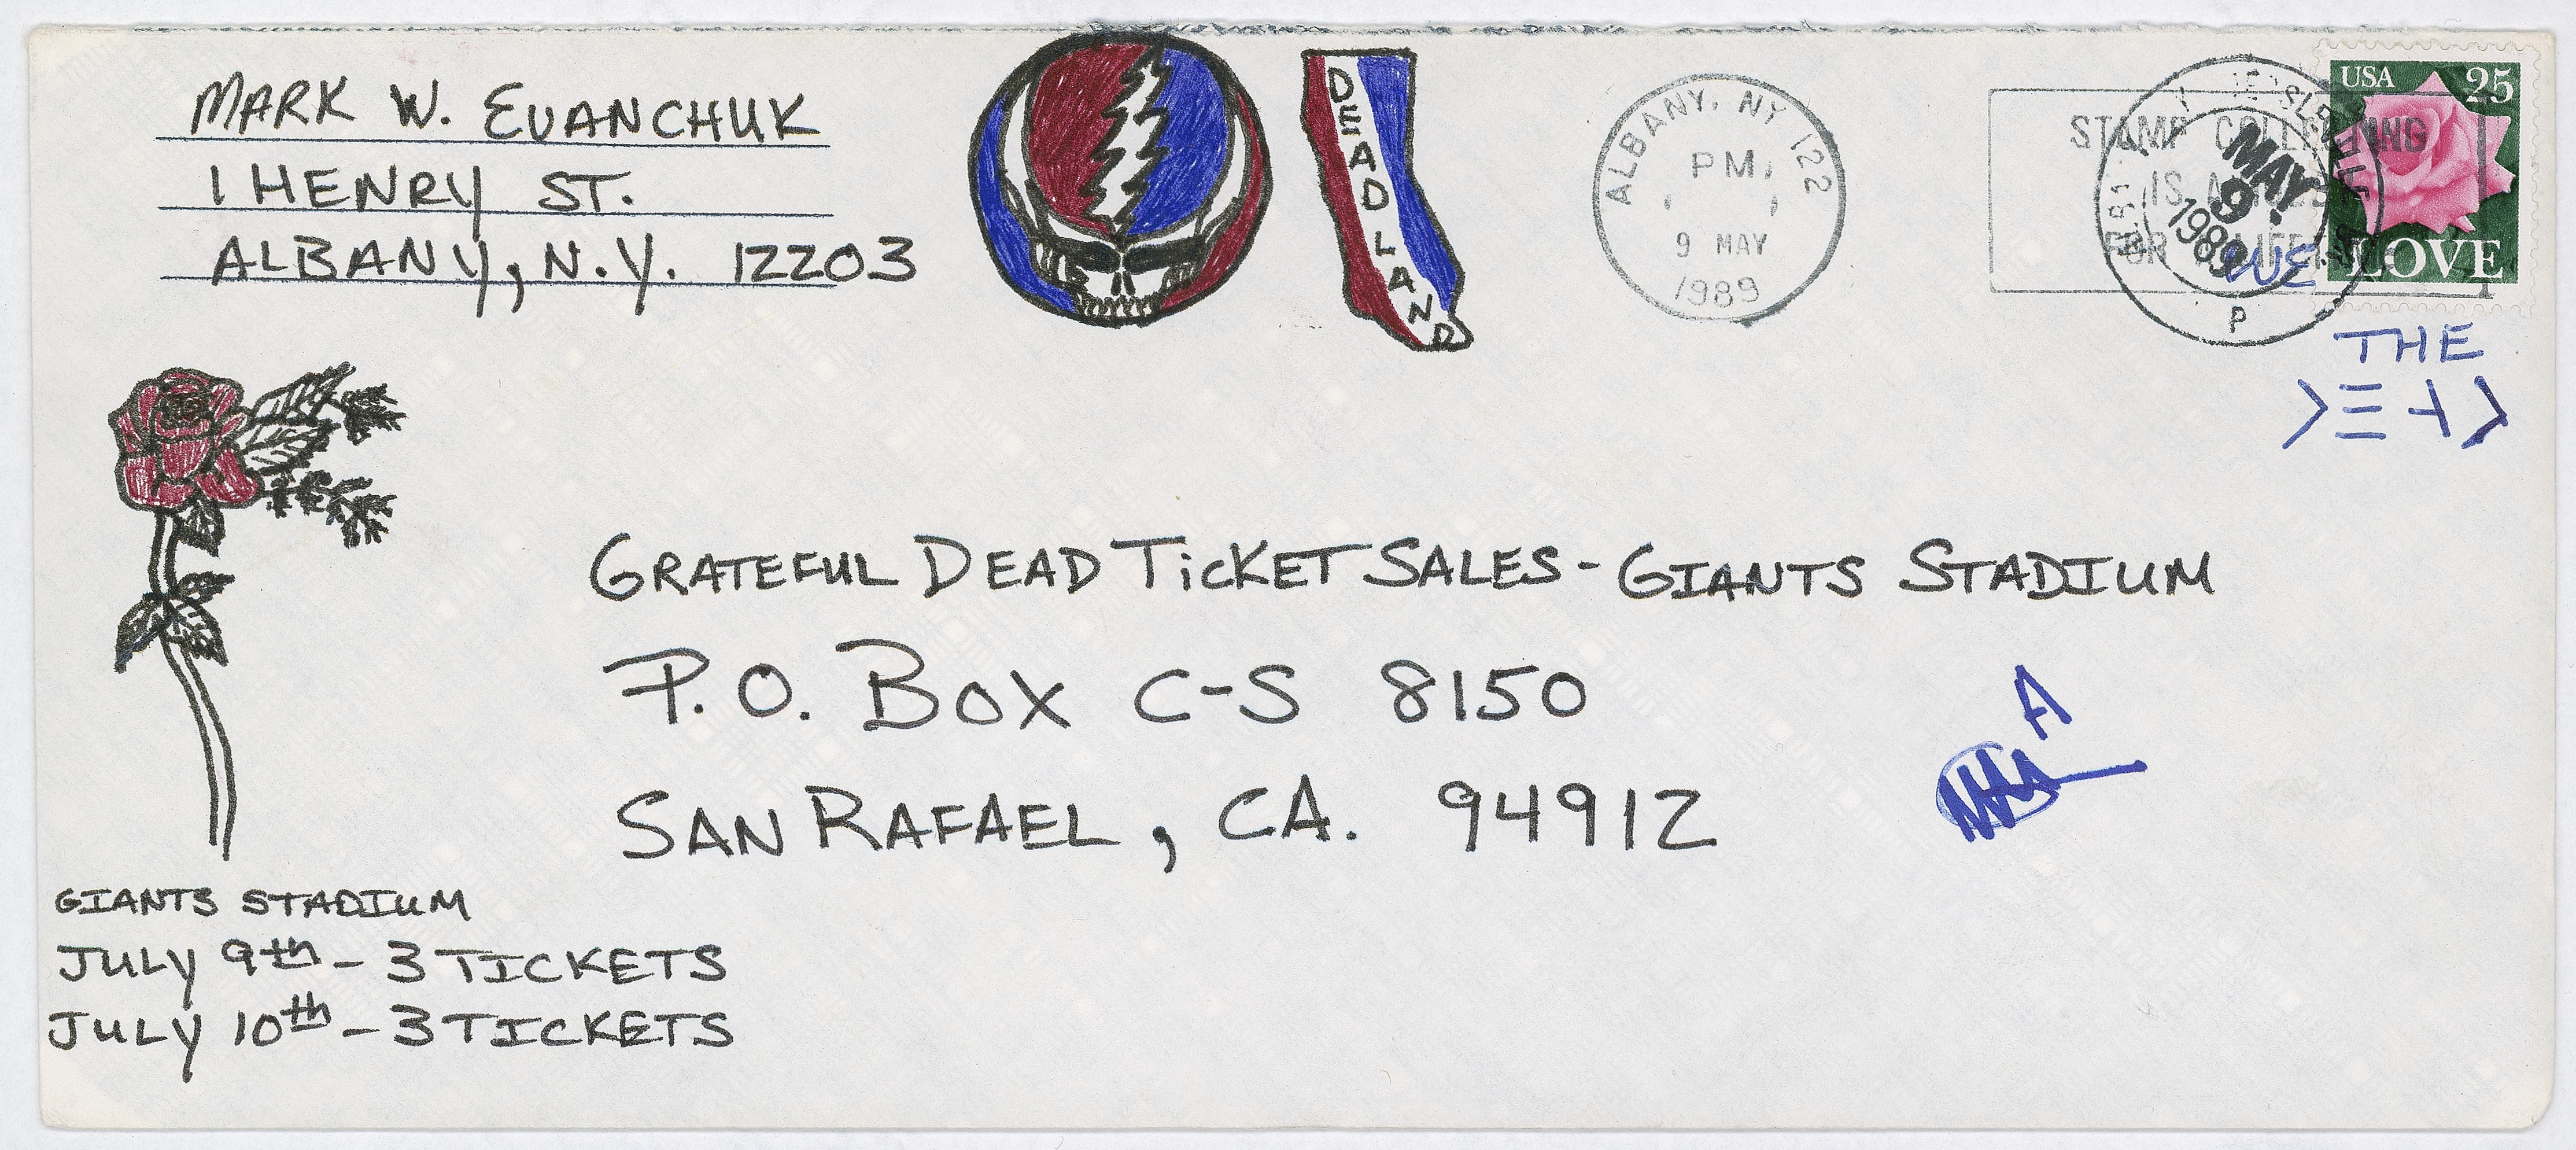 MARK W. EVANCHUK
1 HENRY ST.
ALBANY, N.Y. 12203
DEADLAND
ALBANY, NY 122
PM
9 MAY
1989
STAMP COLLECTING
IS
FOR
MAY
9
1989
P
USA 25
WE LOVE
THE
GRATEFUL DEAD TICKET SALES - GIANTS STADIUM
P.O. BOX C-S 8150
SAN RAFAEL, CA. 94912
A
GIANTS STADIUM
JULY 9th - 3 TICKETS
JULY 10th - 3 TICKETS